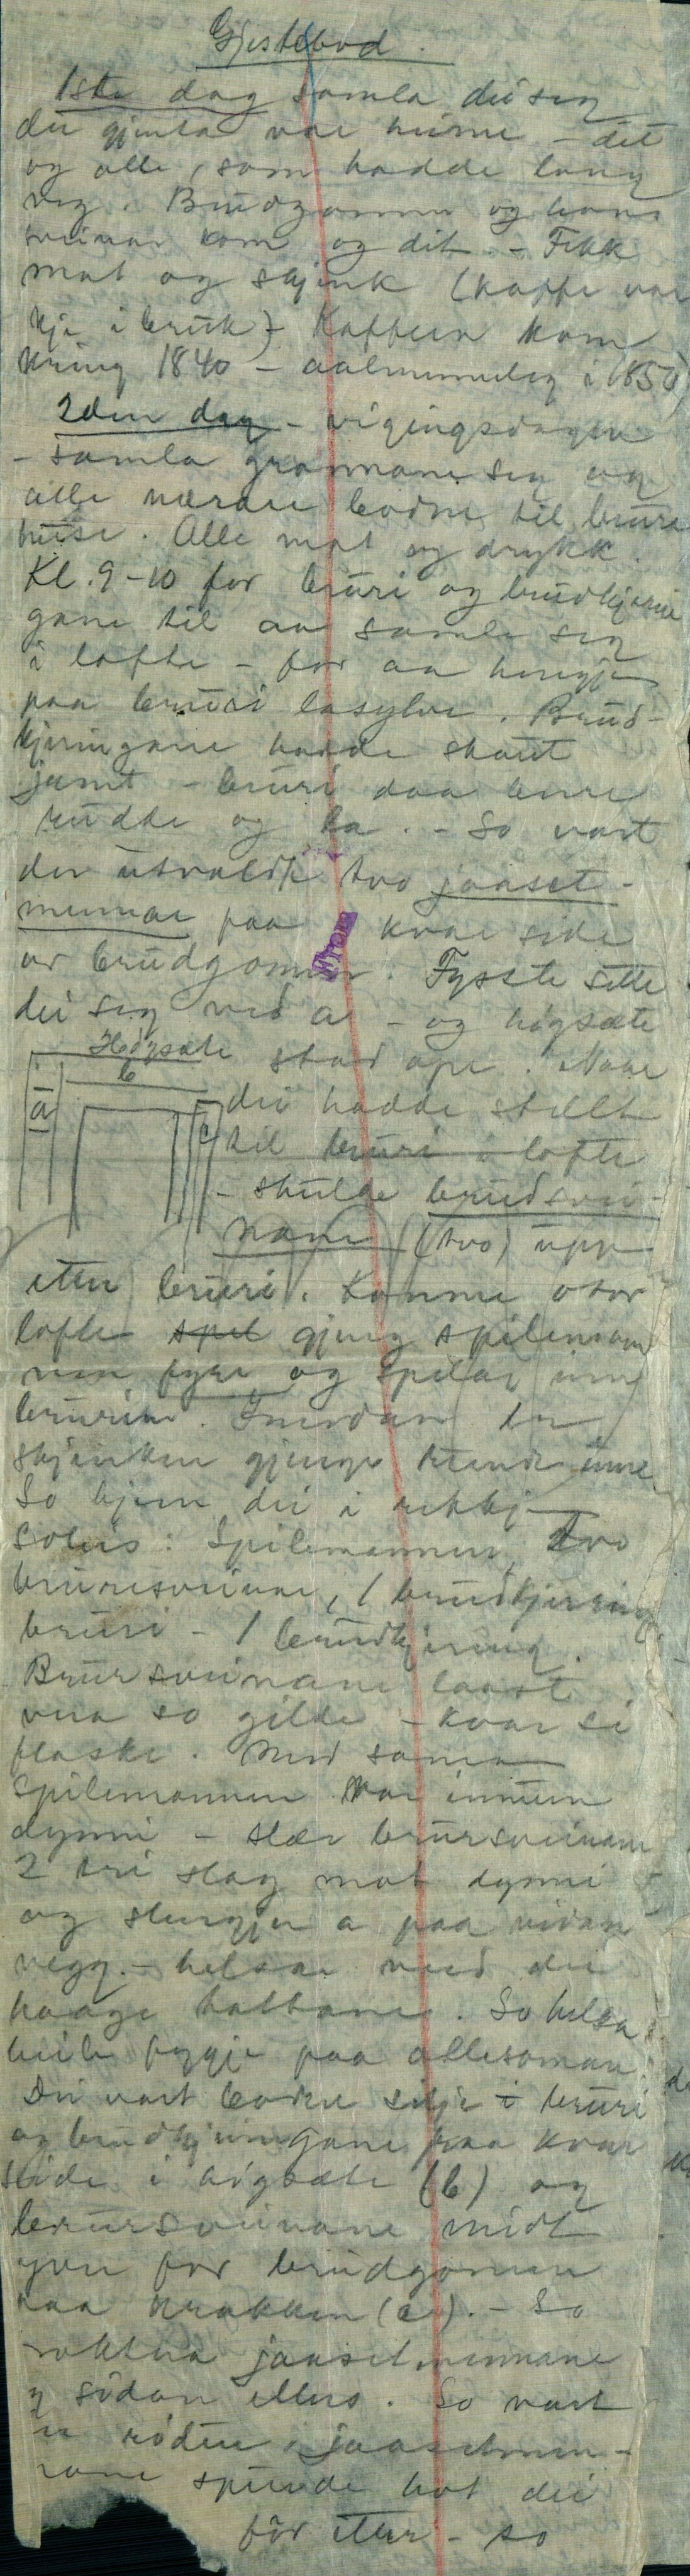 Gjestebod.
1ste dag samla dei seg
der gjenta var heime – dit
og alle, som hadde lang
veg. Brudgomen og hans
sveinar kom og dit. – Fekk
mat og skjenk (kaffi var
kje i bruk) – Kaffien kom
kring 1840 – aalmindeleg i 1850)
2den dag – vigingsdagen
– samla grannane seg og
alle nærare bodne til brure
huse. Alle mat og drykk.
Kl. 9–10 for bruri og brudkjerin
gane til aa samla seg
i lofte – for aa hengje
paa bruri lasylve. Brud-
kjeringane hadde skaut
jamt – bruri daa berre
rudde og la. – So vart
der utvaldt tvo jaaset-
mennar paa kvar side
av brudgomen. Fyste sette
dei seg ved a – og högsæte
Högsæte stod ope. Naar
b
a
dei hadde stellt
c
til bruri i lofte
– skulde brudsvei-
nane (tvo) upp
etter bruri. Komne utor
lofte spel gjeng spilemann
nen fyre og spelar inn
brurine. Innedan er
skjenken gjenge rundt inne.
So kjem dei i rekkje
soleis: Spilemannen, tvo
bruresveinar, 1 brudkjering
bruri – 1 brudkjering.
Brursveinane laast
vera so gilde – kvar si
flaske. Med sama
spilemannen var innum
dynni – slær brursveinane
2 tri slag mot dynni
og slengjer a paa vidan
vegg. – helsar med dei
haage hattane. So helsa
heile fygje paa allesaman.
Dei vart bodne sitje i bruri
og brudkjeringane paa kvar
side i högsæte (b) og
brursveinane midt
yver for brudgomen
paa krakken (c). – So
jaasetmennane
sidan elles. So vart
jaasetmen-
nane spurde kot dei
för etter – so